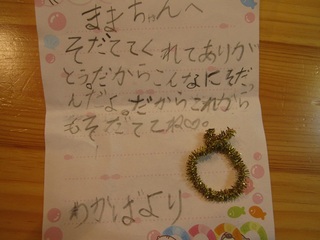 ままちゃんへ
そだててくれてありが
とうだからこんなにそだっ
んだよ。だからこれから
もそだててね♡。
わかばより